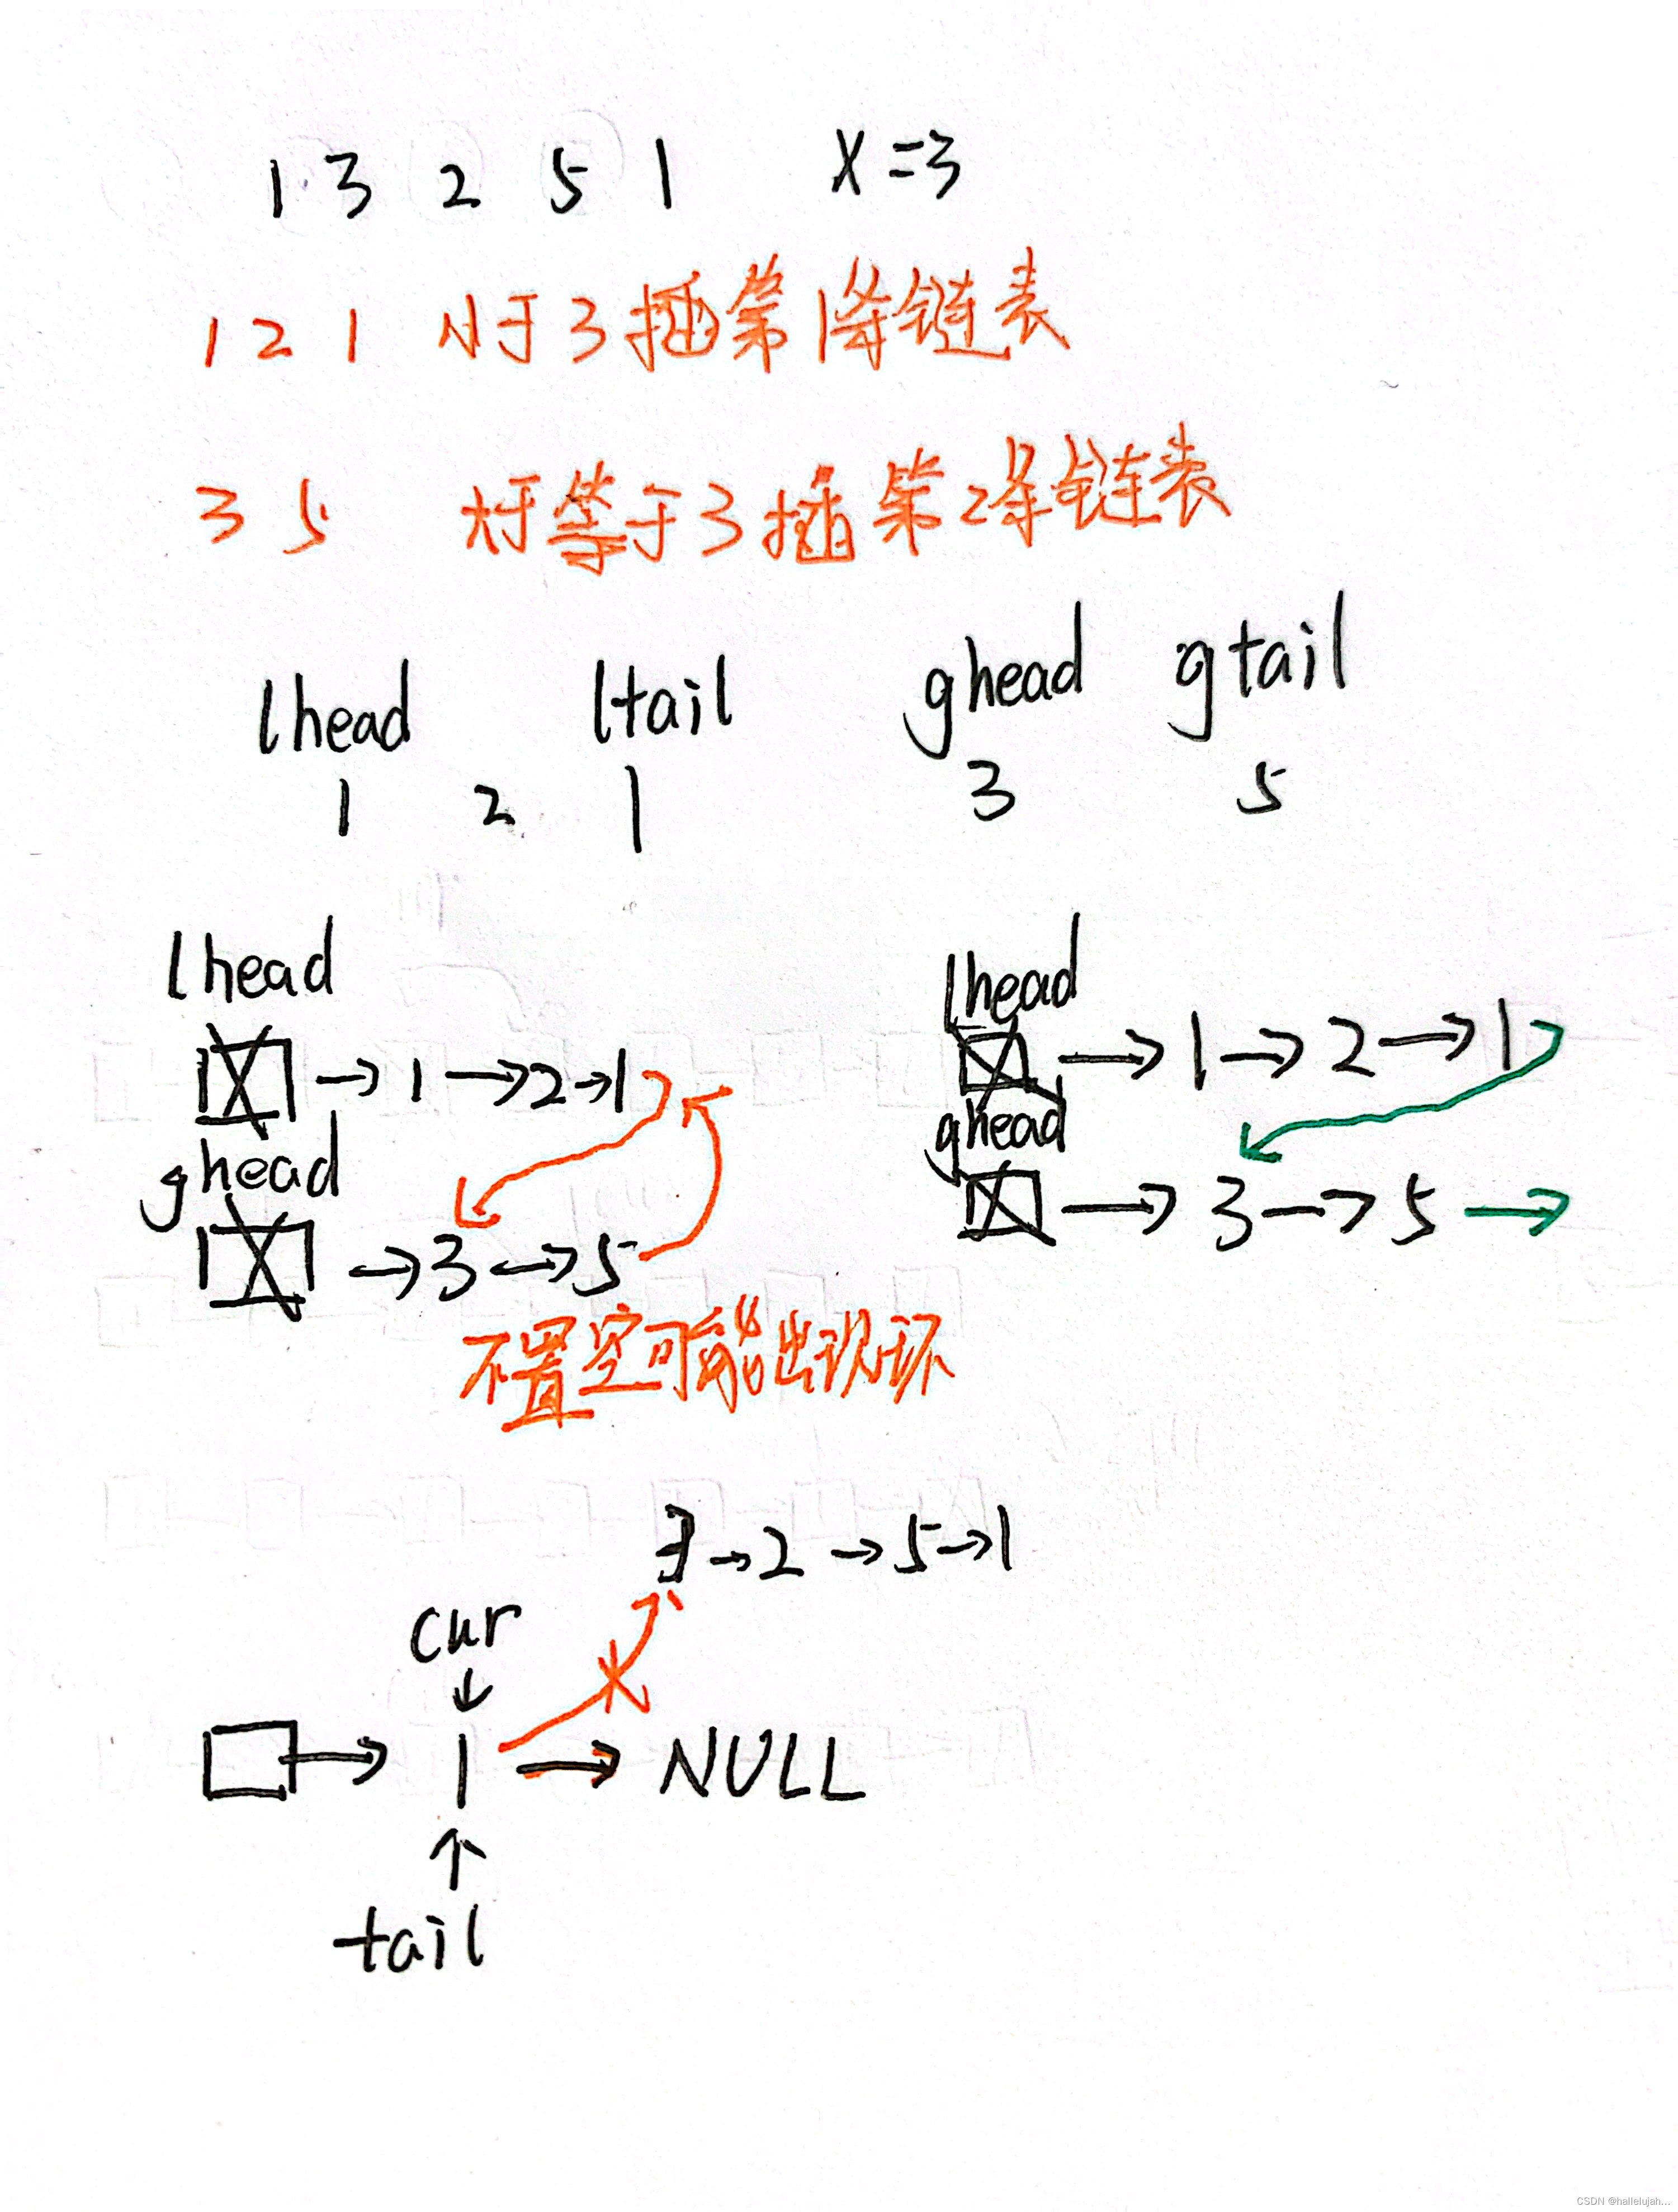 1 3 2 5 1 X=3
1 2 1 小于3插第1条链表
3 5 大于等于3插第2条链表
lhead ltail ghead gtail
1 2 1 3 5
lhead lhead
→1→2→1 →1→2→1
ghead ghead
→3→5 →3→5→
不置空可能出现环
3→2→5→1
cur
↓
→ 1 → NULL
↑
tail
CSDN @hallelujah...